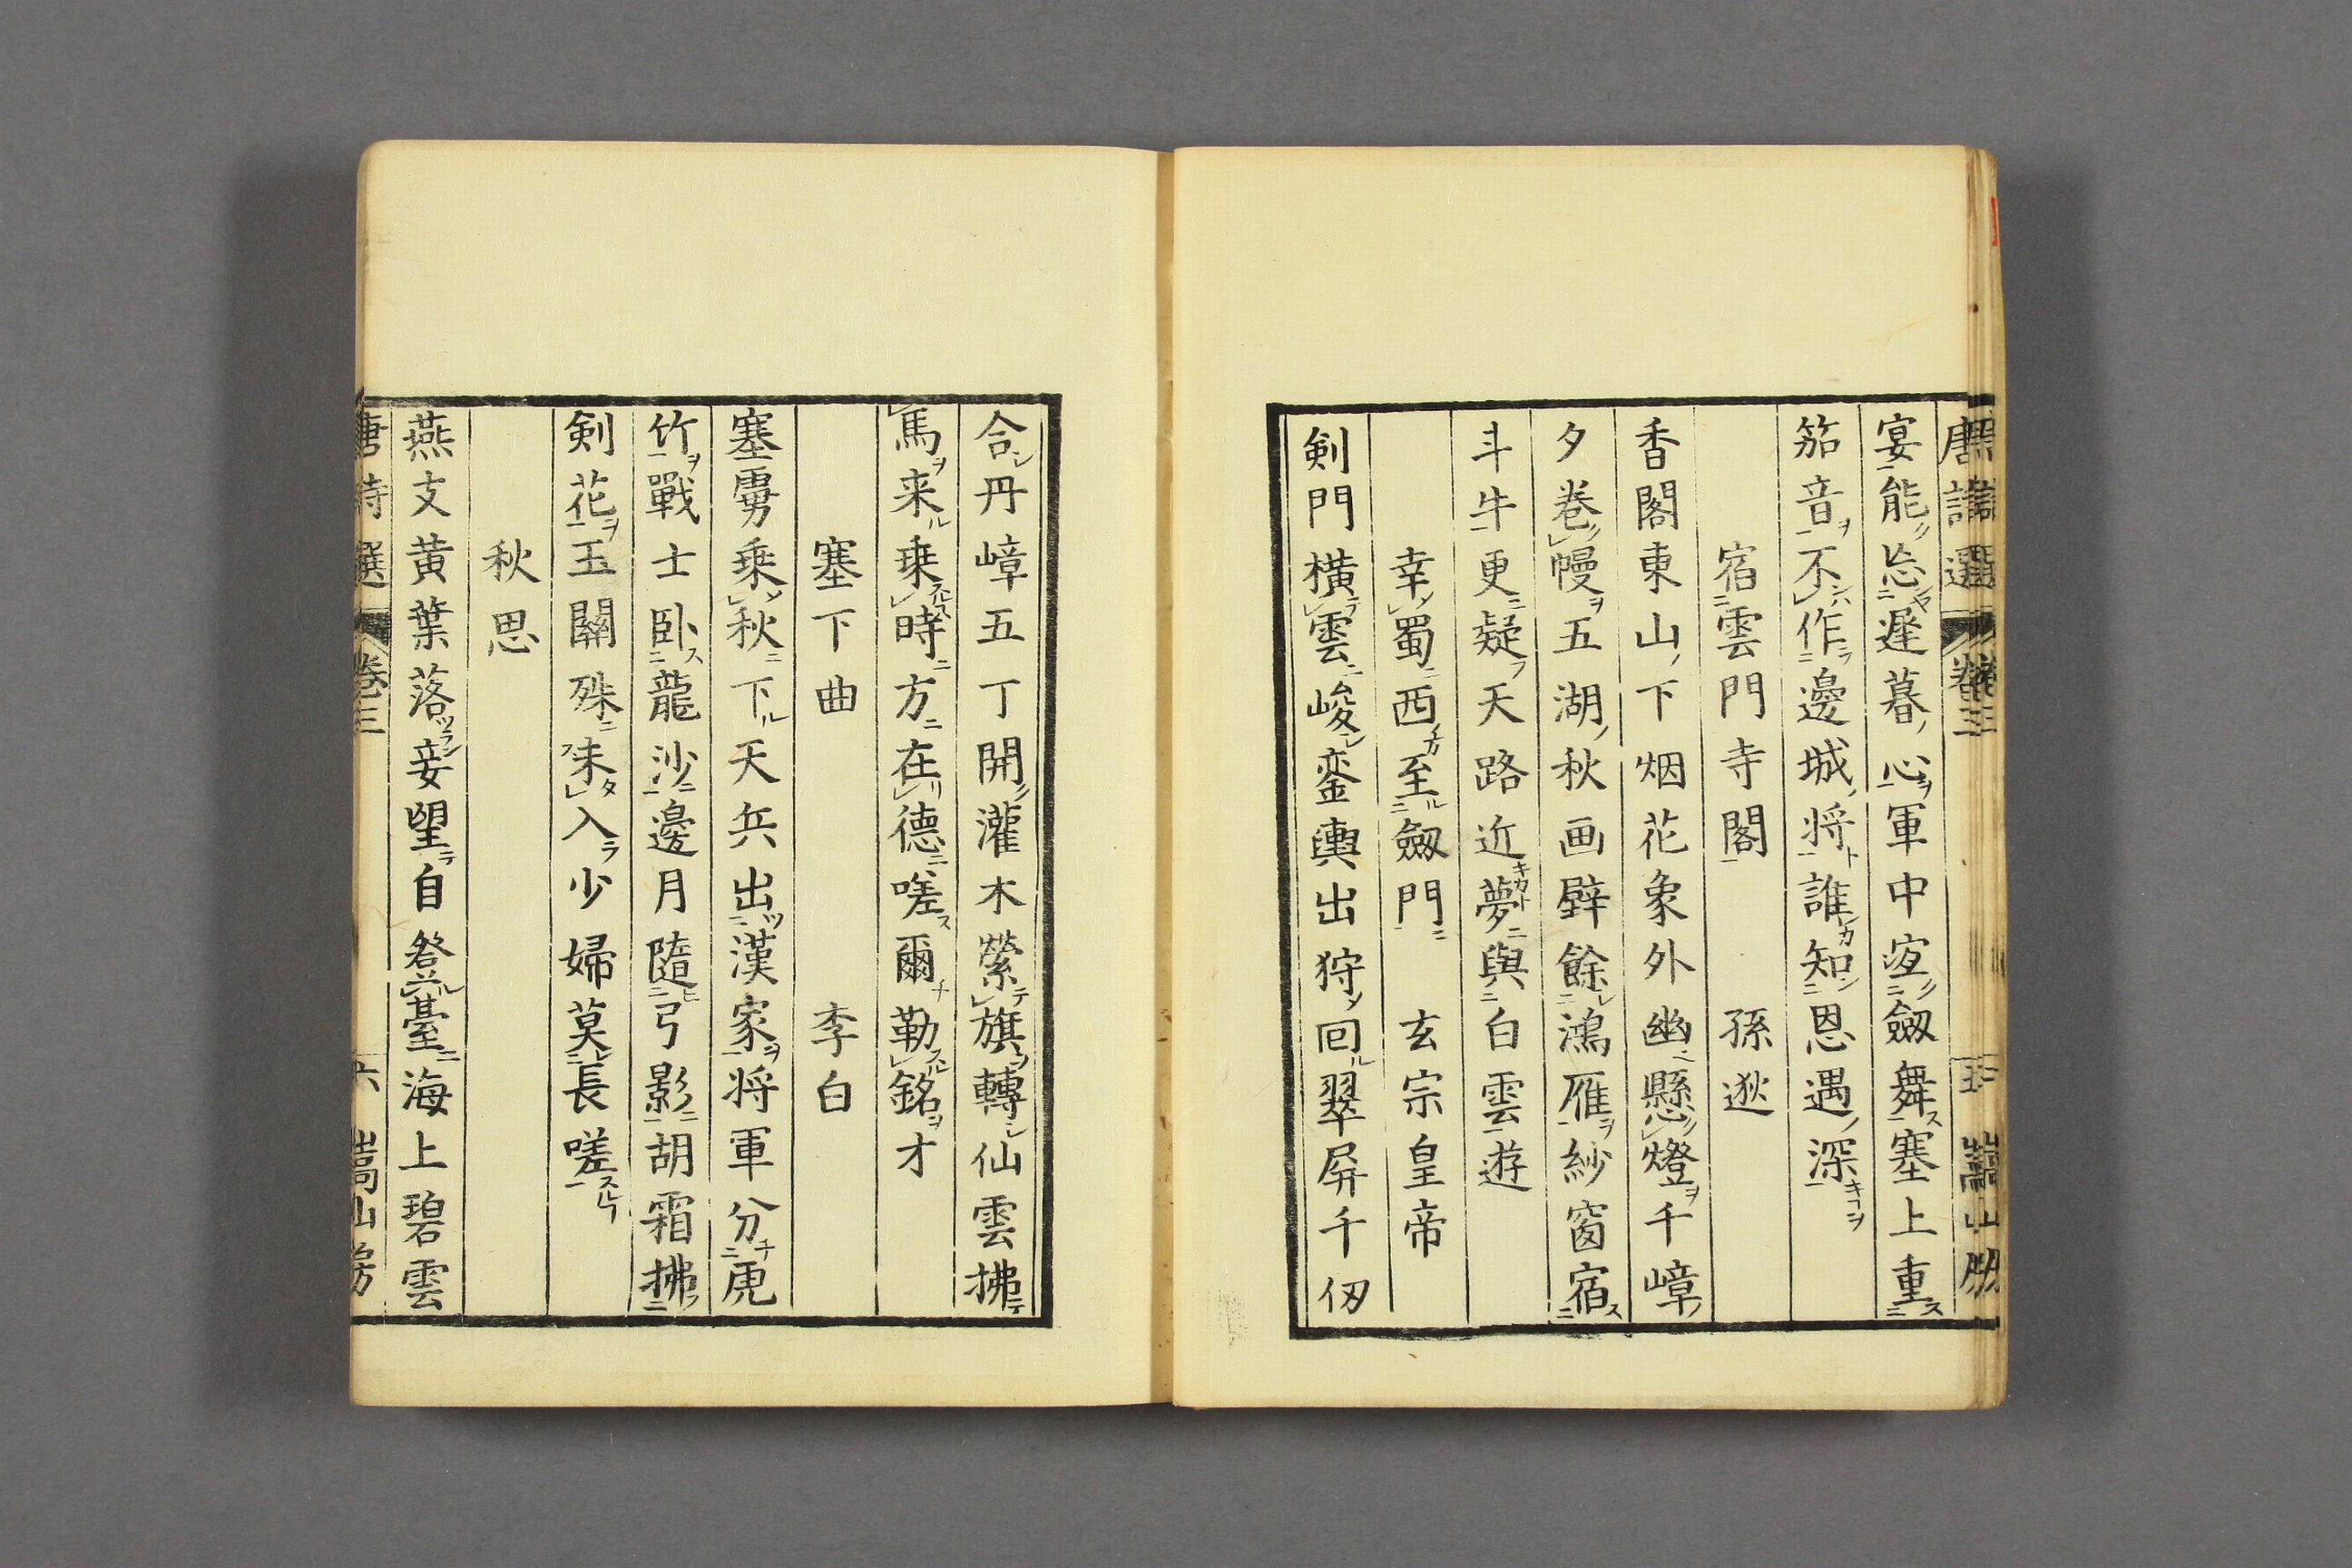 唐詩選 卷三 五 嵩山房
宴能忘遲暮心軍中宜劔舞塞上重
笳音不作邊城將誰知恩遇深
宿雲門寺閣 孫逖
香閣東山下烟花象外幽懸燈千嶂
夕卷幔五湖秋画壁餘鴻雁紗窗宿
斗牛更疑天路近夢與白雲遊
幸蜀西至劔門 玄宗皇帝
剣門横雲峻鑾輿出狩回翠屏千仞
合丹嶂五丁開灌木縈旗轉仙雲拂
馬来乗時方在德嗟爾勒銘才
塞下曲 李白
塞虜乗秋下天兵出漢家将軍分虎
竹戰士卧龍沙邊月隨弓影胡霜拂
剣花玉關殊未入少婦莫長嗟
秋思
燕支黄葉落妾望自登臺海上碧雲
唐詩選 卷三 六 嵩山房